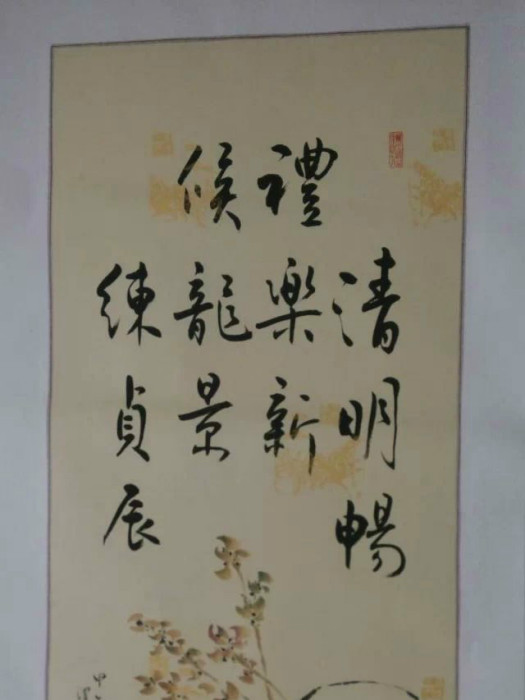 清明暢
禮樂新
候龍景
練貞辰